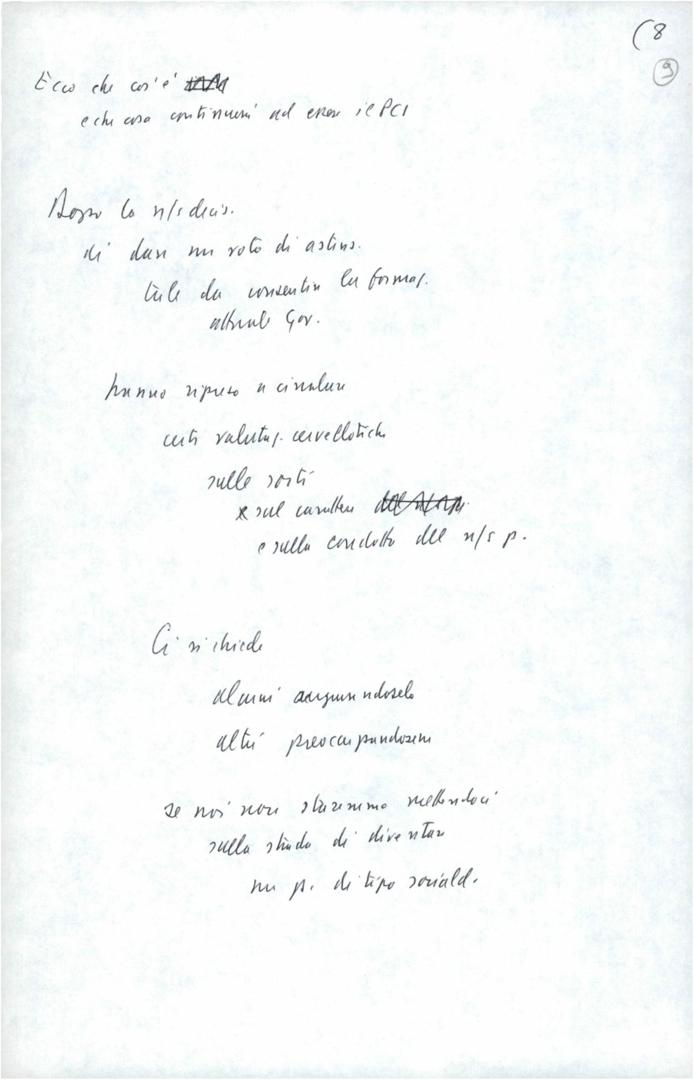 (8
9
Ecco che cos'è
e che cosa continuerà ad essere il PCI
Dopo la n/s decis.
di dare un voto di astens.
tale da consentire la formaz.
attuale Gov.
hanno ripreso a circolare
certi valutaz. cervellotiche
sulle sorti
sul carattere
e sulla condotta del n/s p.
Ci si chiede
alcuni augurandoselo
altri preoccupandosene
se noi non staremmo mettendoci
sulla strada di diventare
un p. di tipo sociald.